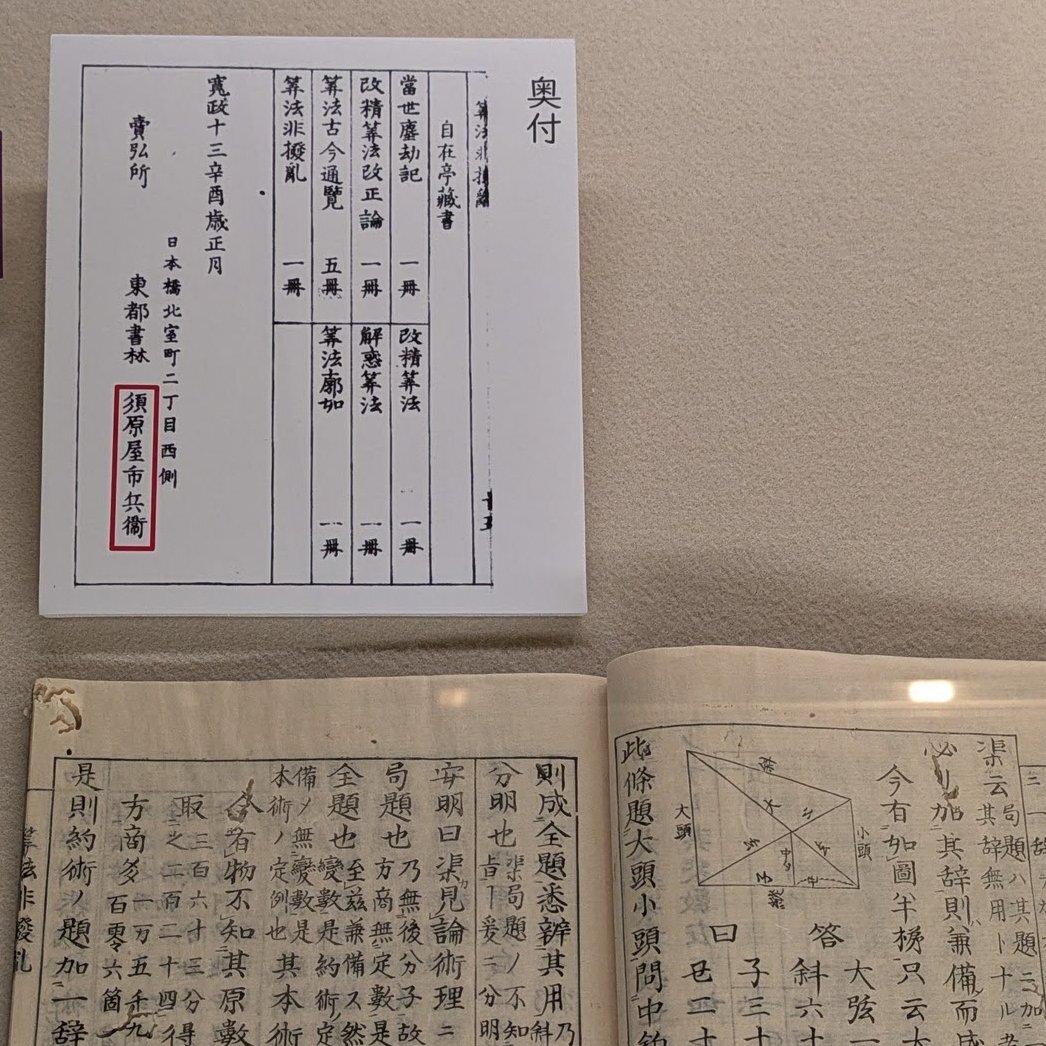 奥付
算法非撥亂
自在亭藏書
當世塵劫記 一冊
改精算法 一冊
改精算法改正論 一冊
解惑算法 一冊
算法古今通覽 五冊
算法廓如 一冊
算法非撥亂 一冊
寛政十三辛酉歳正月
日本橋北室町二丁目西側
賣弘所 東都書林 須原屋市兵衞
渠云
局題ハ其題ニ
其辞無用ト
加其辞則兼備而
今有如圖半梯只云大
大弦一
答 斜六十
子三十
曰
大頭
小頭
此條題大頭小頭問中
則成全題悉辨其用
分明也
渠局題ノ不知
安明曰渠見論術理ニ
局題也
乃無後分子故
方商無定數是
全題也
變數是約術ノ定
至茲兼備ス然
備ノ無變數是
本術ノ定例也
其本術
今有物不知其原數
取三百六十三分
之二百二十四得
方商多
一万五千九
百零六箇
是則約術ノ題加一辞
算法非撥乱